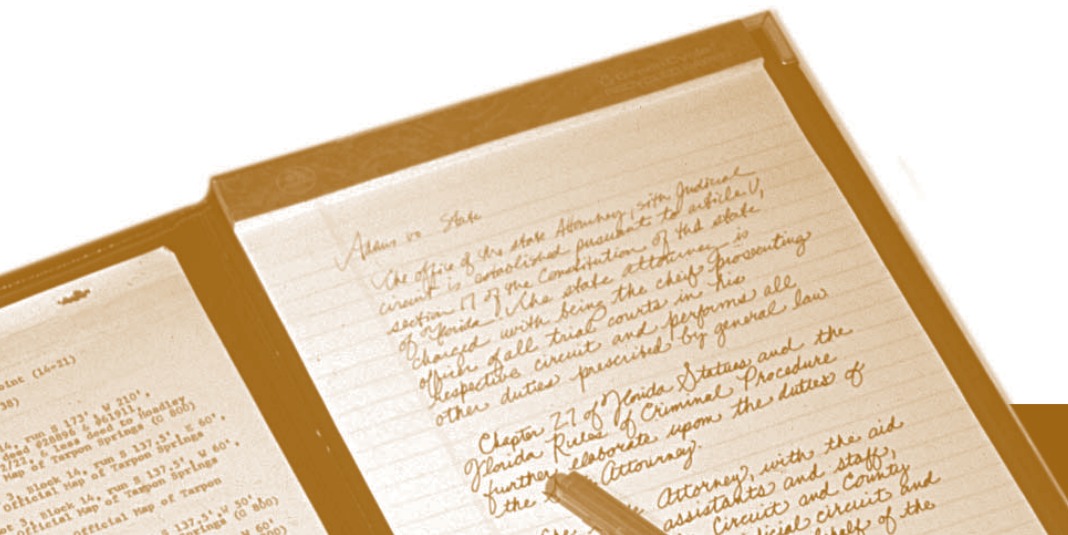 oint (14-21)
38)
14, run S 173' L W 210',
deed #28898 & #61911,
2/221 & less deed to Hoadley
Map of Tarpon Springs (C 800)
3, Block 14, run S 137.5' L W 60',
Official Map of Tarpon Springs
ot 3, Block 14, run S 137.5' L W 60',
Official Map of Tarpon Springs
Official Map of Tarpon
137.5' W 50',
(C 800)
60'
Adams vs State
The office of the state Attorney, sixth Judicial
circuit is established pursuant to article V,
section 17 of the Constitution of the state
of Florida. The state attorney is
charged with being the chief prosecuting
officer of all trial courts in his
respective circuit and performs all
other duties prescribed by general law
Chapter 27 of Florida Statues and the
Florida Rules of Criminal Procedure
further elaborate upon the duties of
the Attorney.
Attorney, with the aid
assistants and staff,
Circuit and County
dicial circuit and
behalf of the